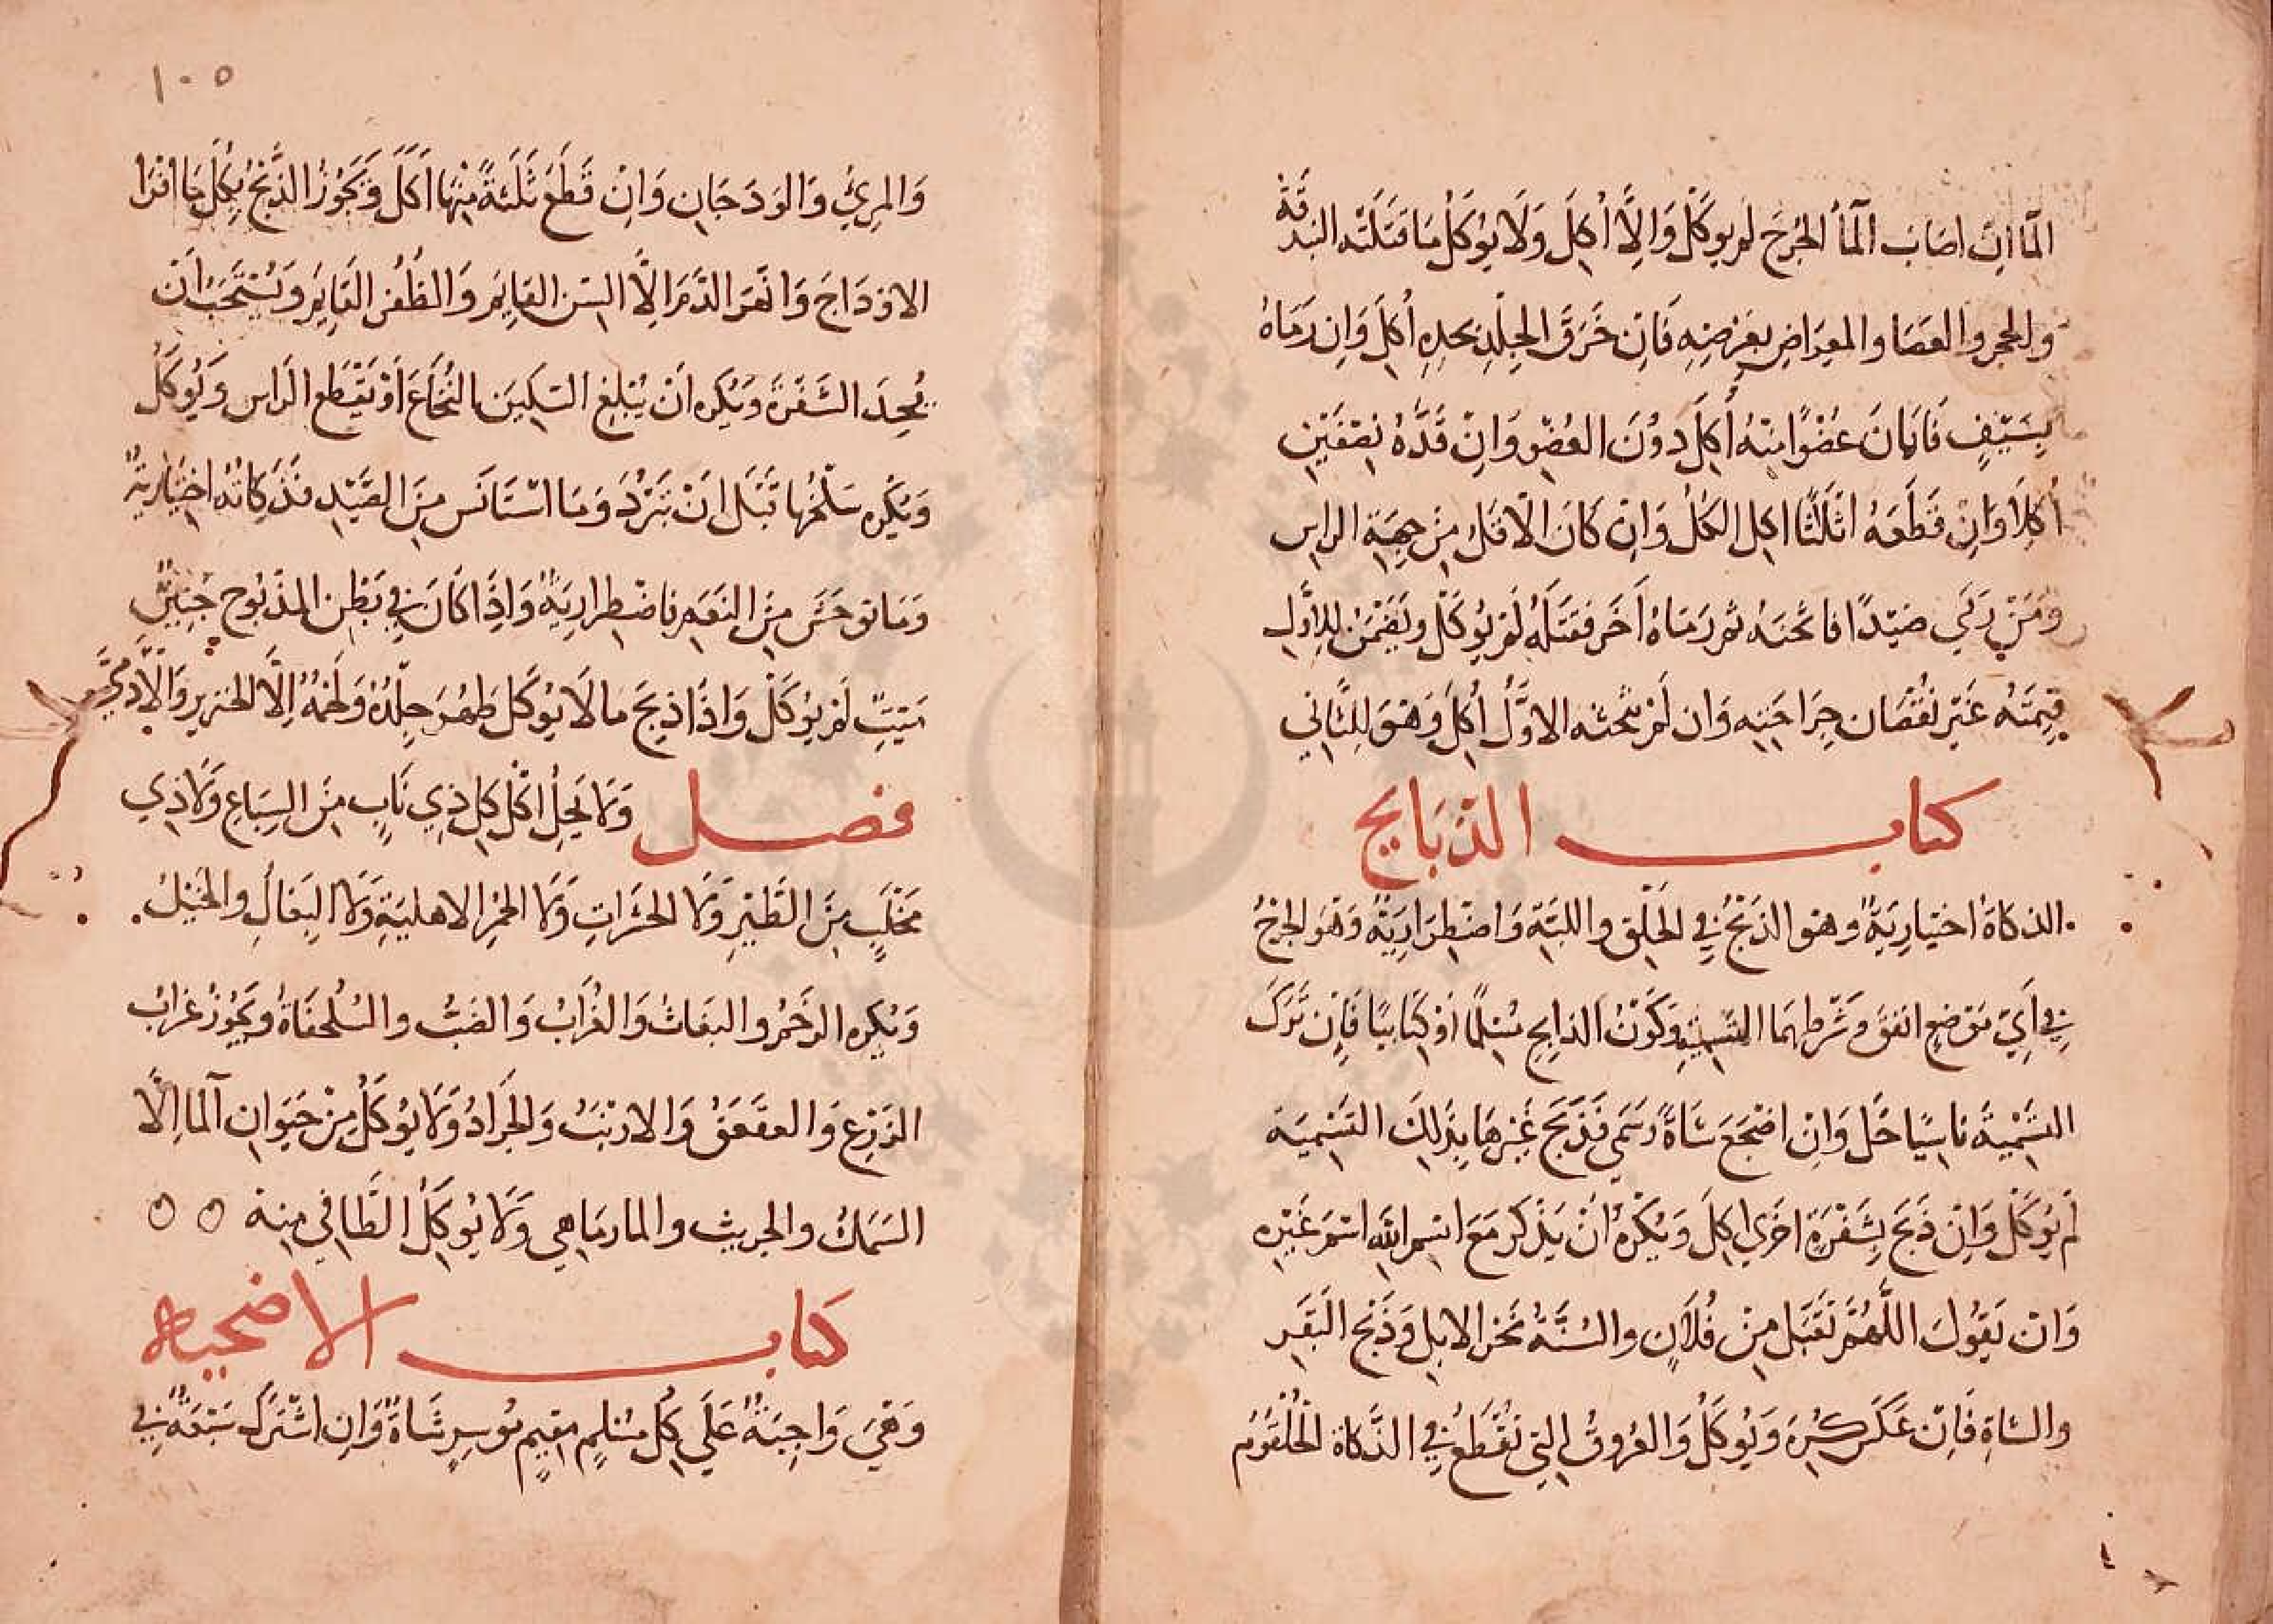 المآ ان اصَابَ المآ الجُرحَ لم يوكَلْ وَالِاَّ اُكِلَ وَلَا يُوكَلُ مَا قَتَلَتْه البندقَة
والحجر والعَصَا والمعِرَاضِ بعَرضِهِ فَاِنْ خَرَقَ الجِلْدِ بحدِهِ اُكِلَ وَاِن رَمَاهُ
بِسَيْفٍ فَابانَ عضْوًا مِنهُ اُكِلَ دوُنَ العُضْوِ وَاِنْ قَدَّهُ نِصْفَيْنِ
اُكِلَا وَاِنْ قَطَعَهُ اَثْلَثًا اكِل الكلُ وَاِنْ كَانَ الْاقَل مِنْ جِهَةِ الراسِ
وَمَنْ رَمَي صَيْدًا فاثخنهُ ثم رَمَاهُ اَخَر فقتَلَهُ لَم يُوكَلْ ويَضْمَنْ لِلاِوَّلِ
قِيمَتَهُ غَيْر نُقْصَان جِرَاحَتِهِ وَان لَمْ يُثخنه الاوَّلُ اُكِلَ وَهوَ لِلثَّانِي
كتاب الذبَايح
الذكاةُ اختيارِيَةٌ وهو الذبحُ في الحَلْقِ واللبَّةِ وَاضطِرَارِيَةٌ وَهَو الجرحُ
في اَيِّ مَوْضعٍ اتفقَ وَشَرطهمَا التسميَة وَكَوْنُ الذابِحِ مُسْلمًا اَوْ كِتَابيًا فَاِن تَرَكَ
التسْمِيةَ ناسِيًا حَلَّ وَاِنْ اضْجَعَ شَاةً وَسَمَي فَذَبحَ غَيْرهَا بِذَلِكَ التَسْمِيَة
لَم يُوكَلْ وَاِنْ ذَبحَ بِشَفْرَةٍ اخرَي اكِلَ وَيُكْرَهُ اَنْ يَذكرَ مَعَ اسْمِ الله اسْمَ غَيْرِه
وَانْ يَقُولَ اللَّهُمَّ تَقَبَل مِنْ فُلَانٍ والسُنَّةُ نَحْر الابِلِ وَذَبْح البَقَرِ
والشاةِ فَاِنْ عَكَسَ كُرِهَ وَيُوكَلُ وَالعُروُقُ التِي تُقْطَعُ في الذَّكاة الحُلْقُوُم
١٠٥
وَالمرِيُ وَالوَدَجَانِ وَاِنْ قَطَعَ ثَلثةً مِنْها اَكلَ وَيَجَوُزُ الذَّبْحُ بِكُلِّ مَا افْرَا
الاوْدَاجَ وَانْهَرَ الدَّمَ اِلَّا السِنِ القايِم وَالظُفُرِ القَايِمَ وَيُسْتَحَبُّ اَنْ
يُحِدَ الشَفرَةَ وَيُكره اَنْ يُبْلِغِ السّكِينَ النُخَاعَ اَوْ يَقْطَع الرَاسِ وَيُوكَلُ
وَيُكره سَلْخُها قَبْلَ اَنْ تَبْرُدَ وَمَا اسْتَانَس مِنَ الصَّيْدِ فذَكاتُهُ اختِيَارِيَّةٌ
وَمَا توحَشَ مِنَ النعَمِ فاضْطِرارِيَةٌ وَاِذَا كَانَ في بَطْنِ المذبُوح جَنِينٌ
مَيتٌ لَمْ يُوكَلْ وَاِذَا ذبحَ مَا لَا يُوكَل طَهُرَ جِلْدُهُ وَلَحْمُهُ اِلَّا الخنزير وَالْاَدَمِيَّ
فصل وَلَا يحِلُ اكْلُ كلِ ذِي نَابٍ مِنَ السِبَاعِ وَلَا ذِي
مَخْلَبٍ مِنَ الطَّيْرِ وَلَا الحَشَرَاتِ وَلَا الحُمُر الاهليَةِ وَلَا البِغَالُ والخَيْلُ
وَيُكره الرخَمُ والبغَاثُ وَالغُرَابُ وَالضَبُّ والسُلْحفَاةُ وَيَجُوزُ غرَابُ
الزَرْعِ وَالعقعَقُ وَالارْنَبُ وَالجَرَادُ وَلَا يُوكَلُ مِنْ حَيَوانِ المآ اِلَّا
السَمَكُ والجريث والمارمَاهِي وَلَا يُوكَلُ الطَّافِي مِنهُ ٥ ٥
كتاب الاضحية
وَهْيَ وَاجِبَةٌ عَلَي كُلِ مُسْلِمٍ مقيمٍ موُسِرٍ شَاةٌ وَاِن اشْتَرَكَ سَبْعَةٌ في